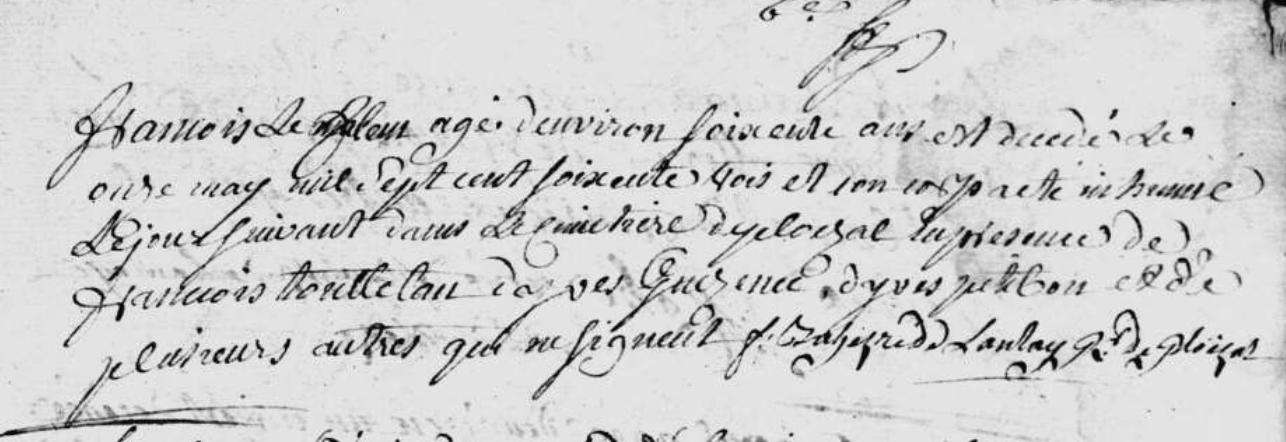 francois Le agé denviron soixente ans est decedé Le
onze may mil Sept cent soixente trois et son corp a eté inhumé
Le jour suivant dans Le cimetiere de ploezal en presence de
francois dyves Guezenec dyves petibon et de
plusieurs autres qui ne signent f: de Launay Rr de ploezal